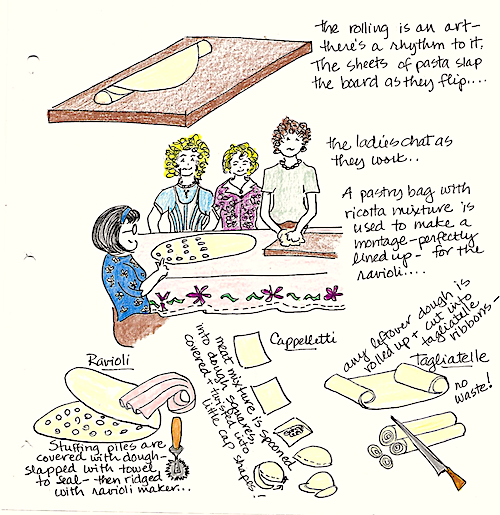 the rolling is an art-
there's a rhythm to it.
The sheets of pasta slap
the board as they flip....
the ladies chat as
they work...
A pastry bag with
ricotta mixture is
used to make a
montage-perfectly
lined up- for the
ravioli....
Ravioli
Stuffing piles are
covered with dough-
slapped with towel
to seal-- then ridged
with ravioli maker...
Cappelletti
meat mixture is spooned
into dough squares,
covered + twisted into
little cap shapes!-
any leftover dough is
rolled up + cut into
tagliatelle
ribbons-
Tagliatelle
no
waste!